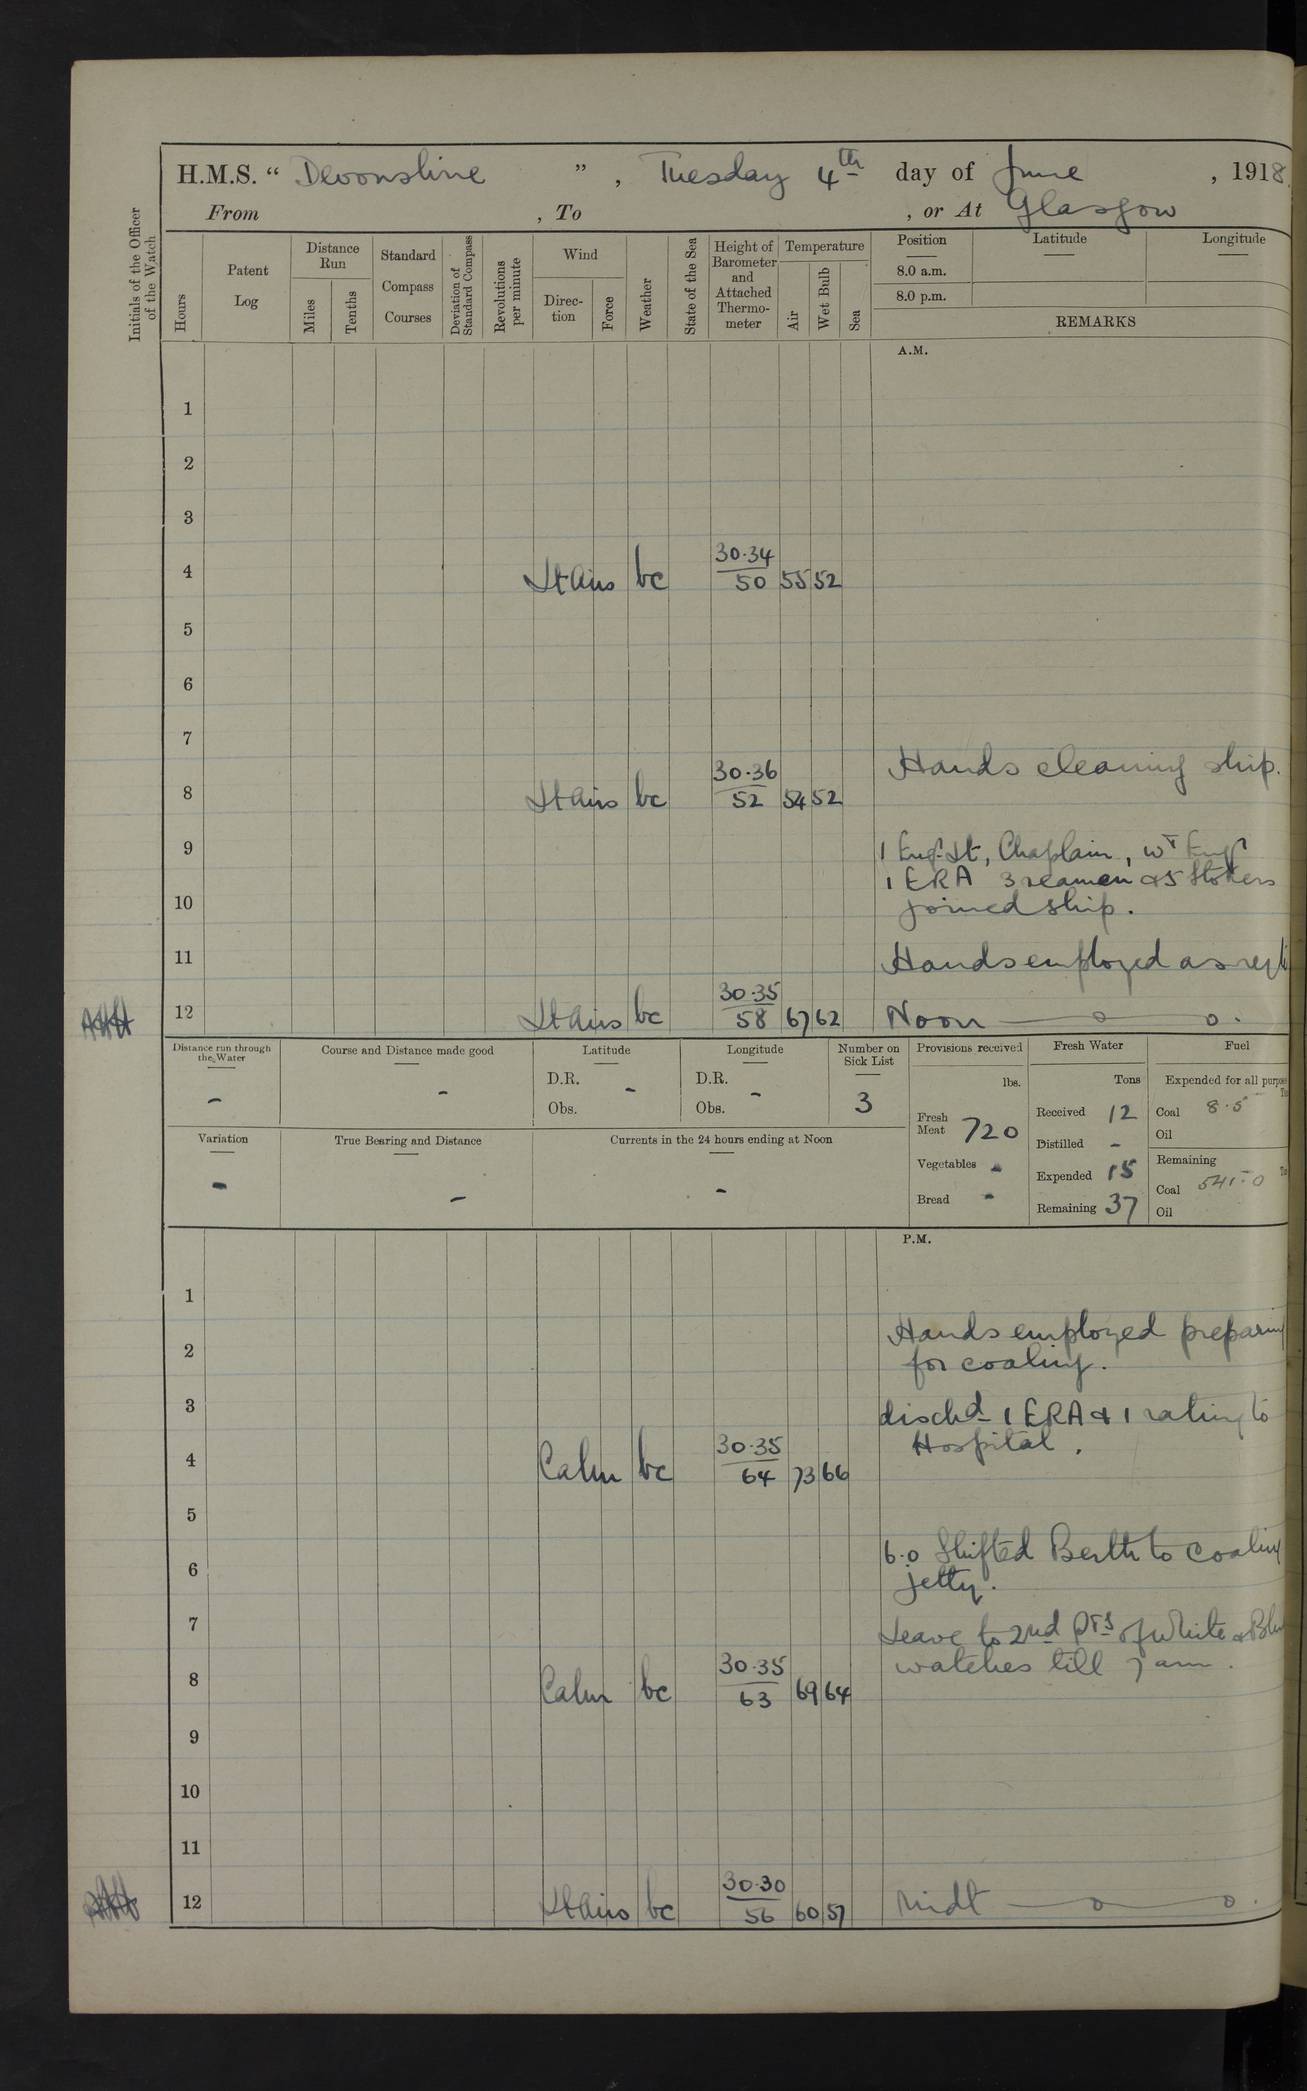 H.M.S. “ Devonshire ” , Tuesday 4th day of June , 1918
From , To , or At Glasgow
Initials of the Officer of the Watch
Hours
Patent Log
Distance Run
Miles
Tenths
Standard Compass Courses
Deviation of Standard Compass
Revolutions per minute
Wind
Direc-tion
Force
Weather
State of the Sea
Height of Barometer and Attached Thermo-meter
Temperature
Air
Wet Bulb
Sea
Position
Latitude
Longitude
8.0 a.m.
8.0 p.m.
REMARKS
A.M.
1
2
3
4 Lt Airs bc 30.34 50 55 52
5
6
7
Hands cleaning ship.
8 Lt Airs bc 30.36 52 54 52
9 1 Engr Lt, Chaplain, WT Engr
1 ERA 3 seamen & 5 Stokers
10 joined ship.
11 Hands employed as
12 Lt Airs bc 30.35 58 67 62 Noon
Distance run through the Water -
Course and Distance made good -
Latitude
D.R. -
Obs.
Longitude
D.R. -
Obs.
Number on Sick List
3
Provisions received
lbs.
Fresh Meat 720
Vegetables -
Bread -
Fresh Water
Tons
Received 12
Distilled -
Expended 15
Remaining 37
Fuel
Expended for all
Coal 8.5
Oil
Remaining
Coal 541.0
Oil
Variation -
True Bearing and Distance -
Currents in the 24 hours ending at Noon -
P.M.
1
Hands employed
2 for coaling.
3 dischd 1 ERA & 1 rating to
Hospital.
4 Calm bc 30.35 64 73 66
5
6.0 Shifted Berth to
6 jetty.
7 Leave to 2nd Pts of White &
watches till 7 am.
8 Calm bc 30.35 63 69 64
9
10
11
12 Lt Airs bc 30.30 56 60 57 Midt